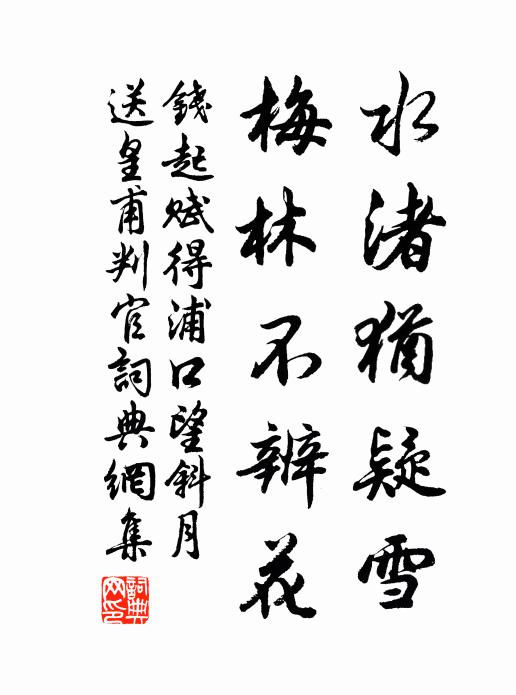 水渚猶疑雪
梅林不辨花
錢起賦得浦口望斜月
送皇甫判官詞典網集
詞典網印